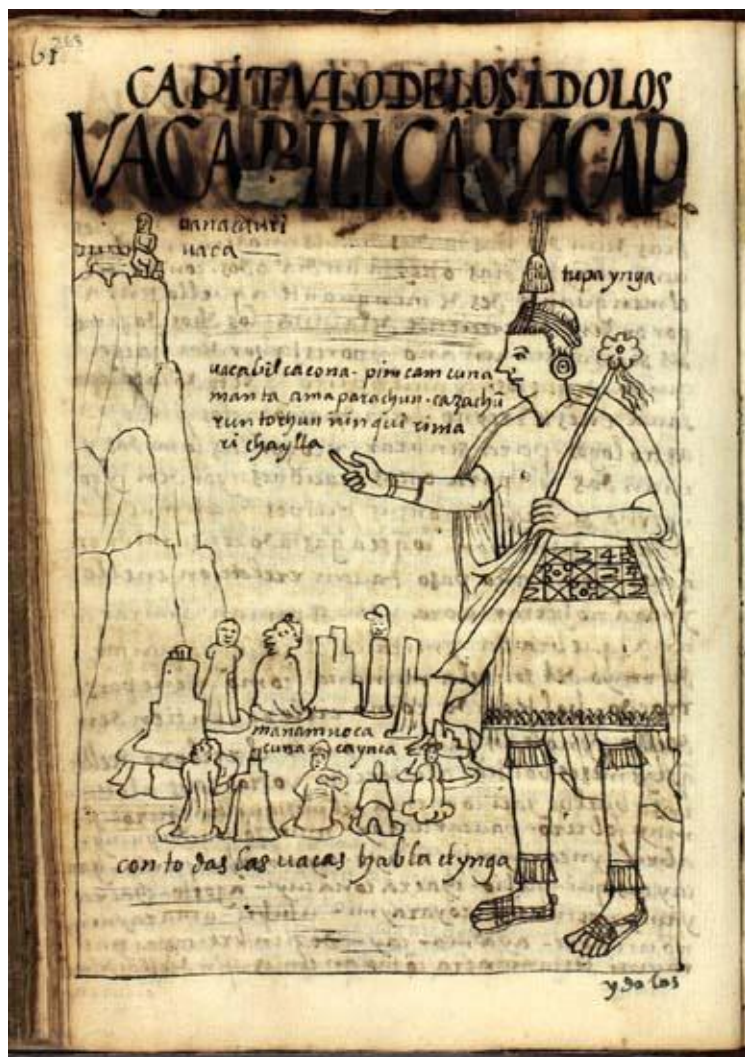 CAPITVLO DE LOS IDOLOS
VACA BILLCA INCAP
uanacauri
uaca
topa ynga
uacabilcacona - pim camcuna
manta ama parachun - cazachū
runtochun ninqui rima
ri chaylla
manam noca
cuna caynca
con todas las uacas habla el ynga
ydolos